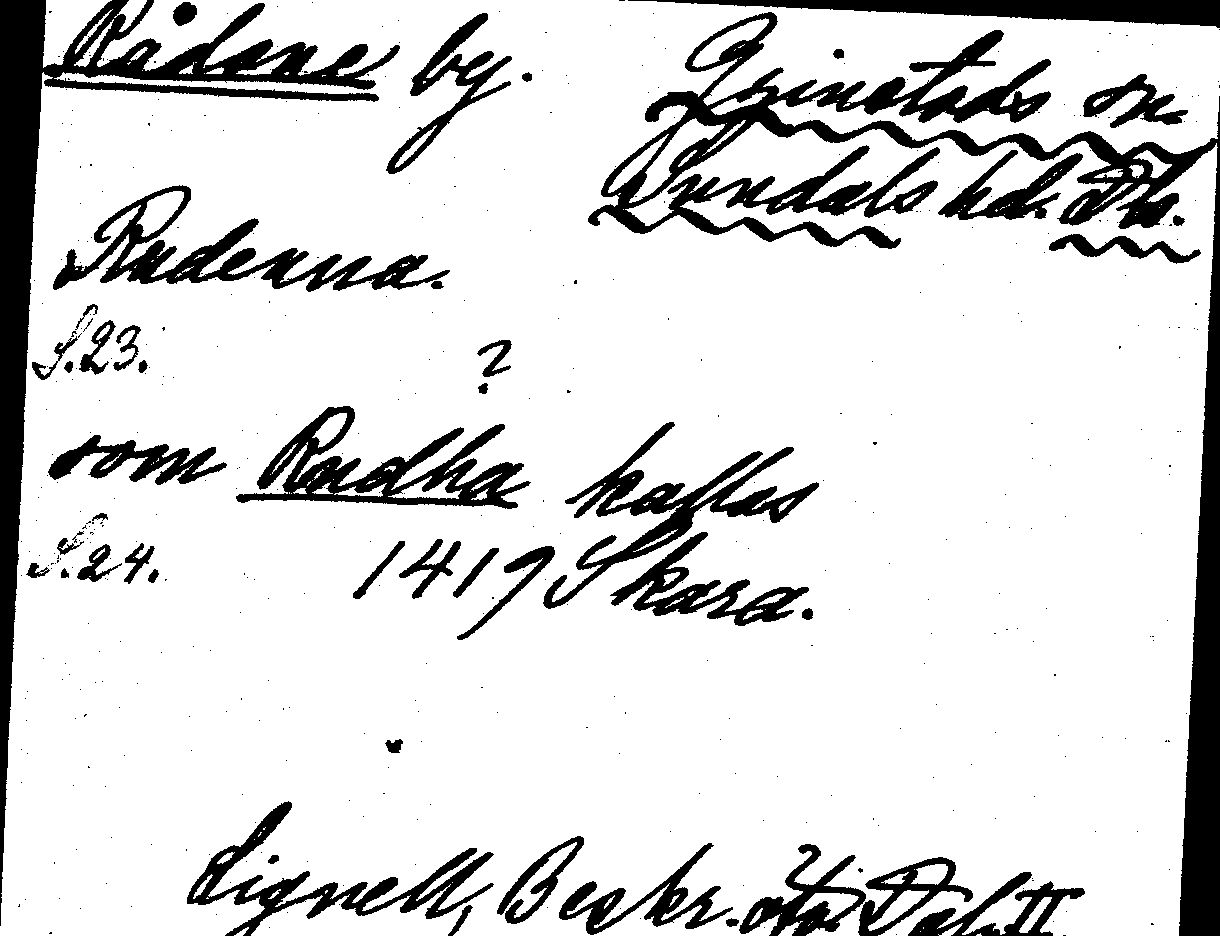 Rådane by. Grinstads sn.
Sundals hd. Dls.
Rudenna.
S.23.
?
som Rudha kallas
S.24. 1417 Skara.
Lignell, Beskr. öfv. Dal. II